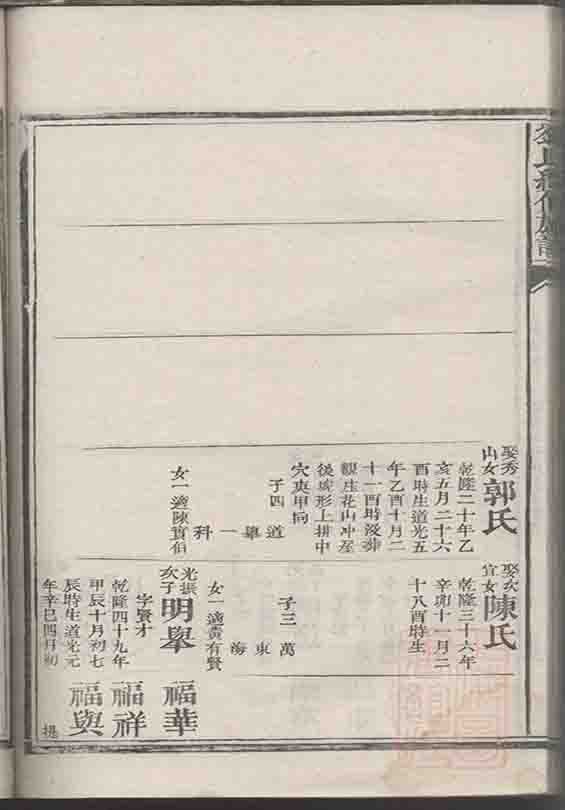 娶秀
山女
郭氏
乾隆二十年乙
亥五月二十六
酉時生道光五
年乙酉十月二
十一酉時沒葬
後成形上排中
子四
道
舉
一
科
女一適陳寶伯
娶次
宜女
陳氏
乾隆三十六年
辛卯十一月二
十八酉時生
子三
萬
東
海
女一適黃有賢
光振
次子
明舉
字賢才
乾隆四十九年
甲辰十月初七
辰時生道光元
年辛巳四月初
福華
福祥
福與